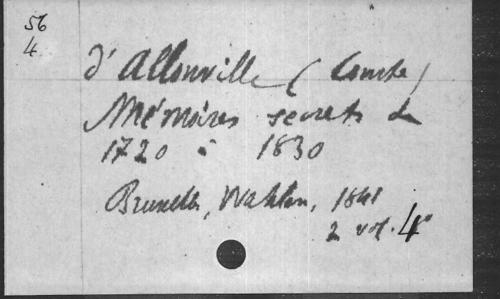 56
4
d'Allonville (Comte)
Mémoires secrets de
1720 à 1830
Bruxelles, Wahlen, 1841
2 vol. 4°